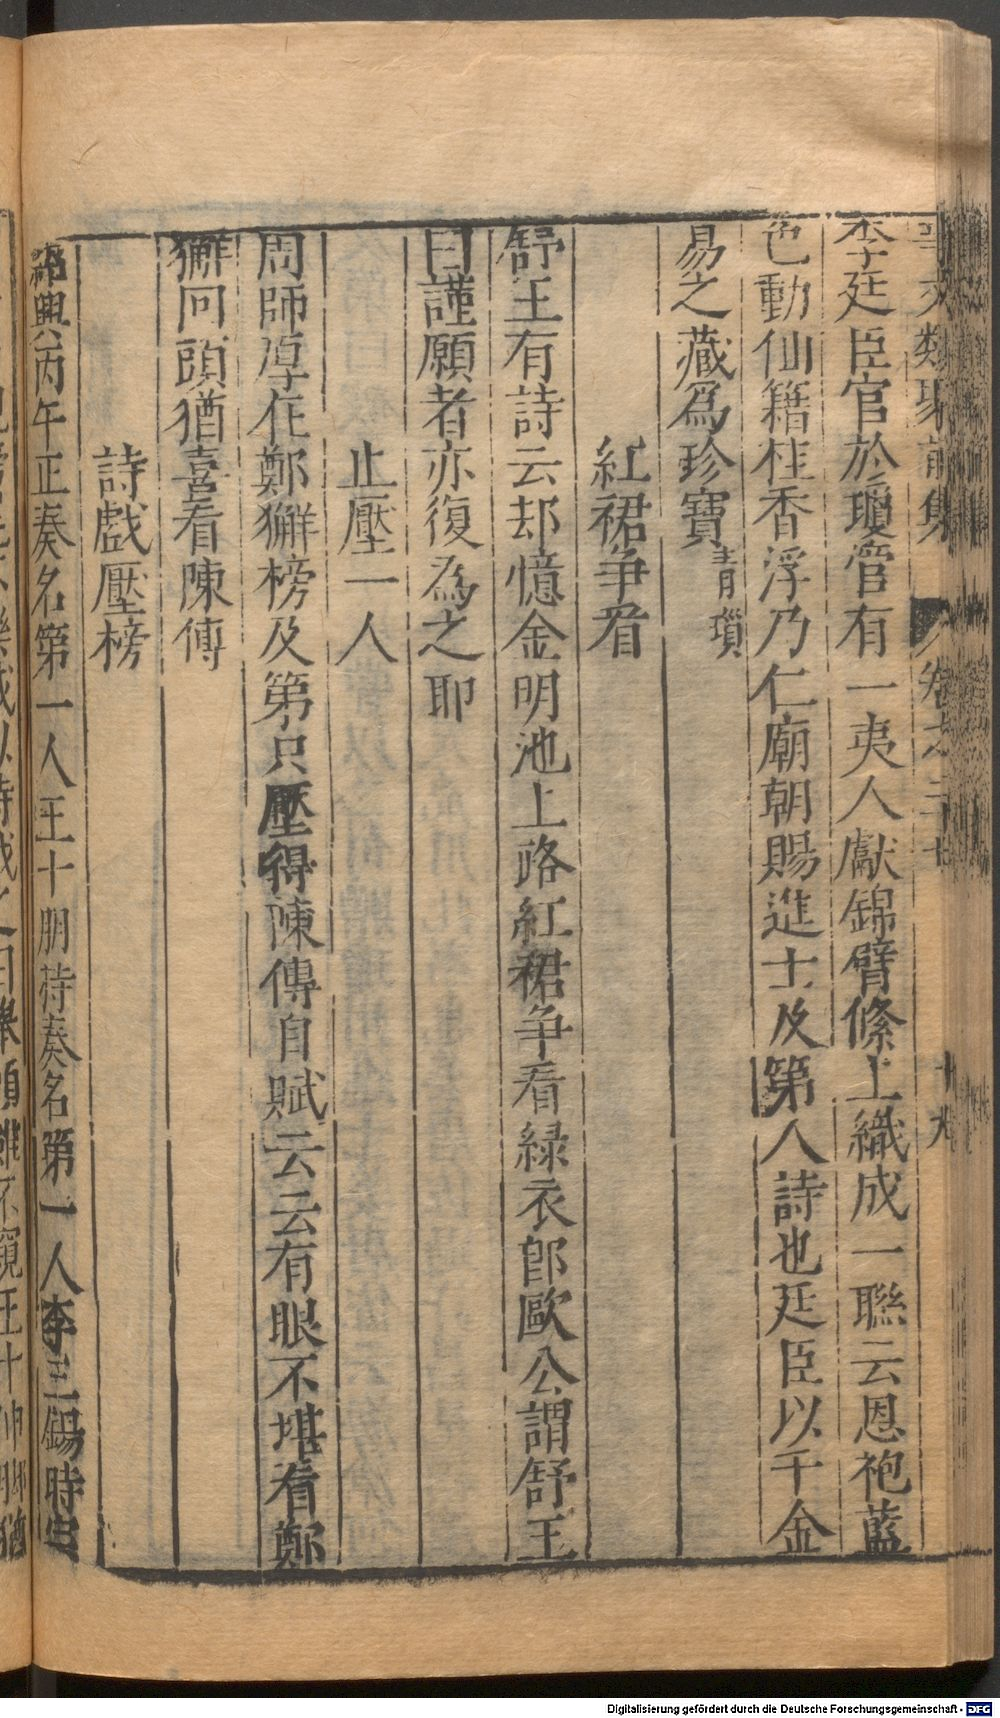 事文類聚前集 卷之二十七 十九
李廷臣官於瓊管有一夷人獻錦臂絛上織成一聯云恩袍藍
色動仙籍桂香浮乃仁廟朝賜進士及第人詩也廷臣以千金
易之藏爲珍寶青瑣
紅裙争看
舒王有詩云却憶金明池上路紅裙争看緑衣郎歐公謂舒王
曰謹願者亦復為之耶
止壓一人
周師厚在鄭獬榜及第只壓得陳傳自賦云云有眼不堪看鄭
獬回頭猶喜看陳傳
詩戲壓榜
紹興丙午正奏名第一人王十朋特奏名第一人李三錫時安
Digitalisierung gefördert durch die Deutsche Forschungsgemeinschaft - DFG